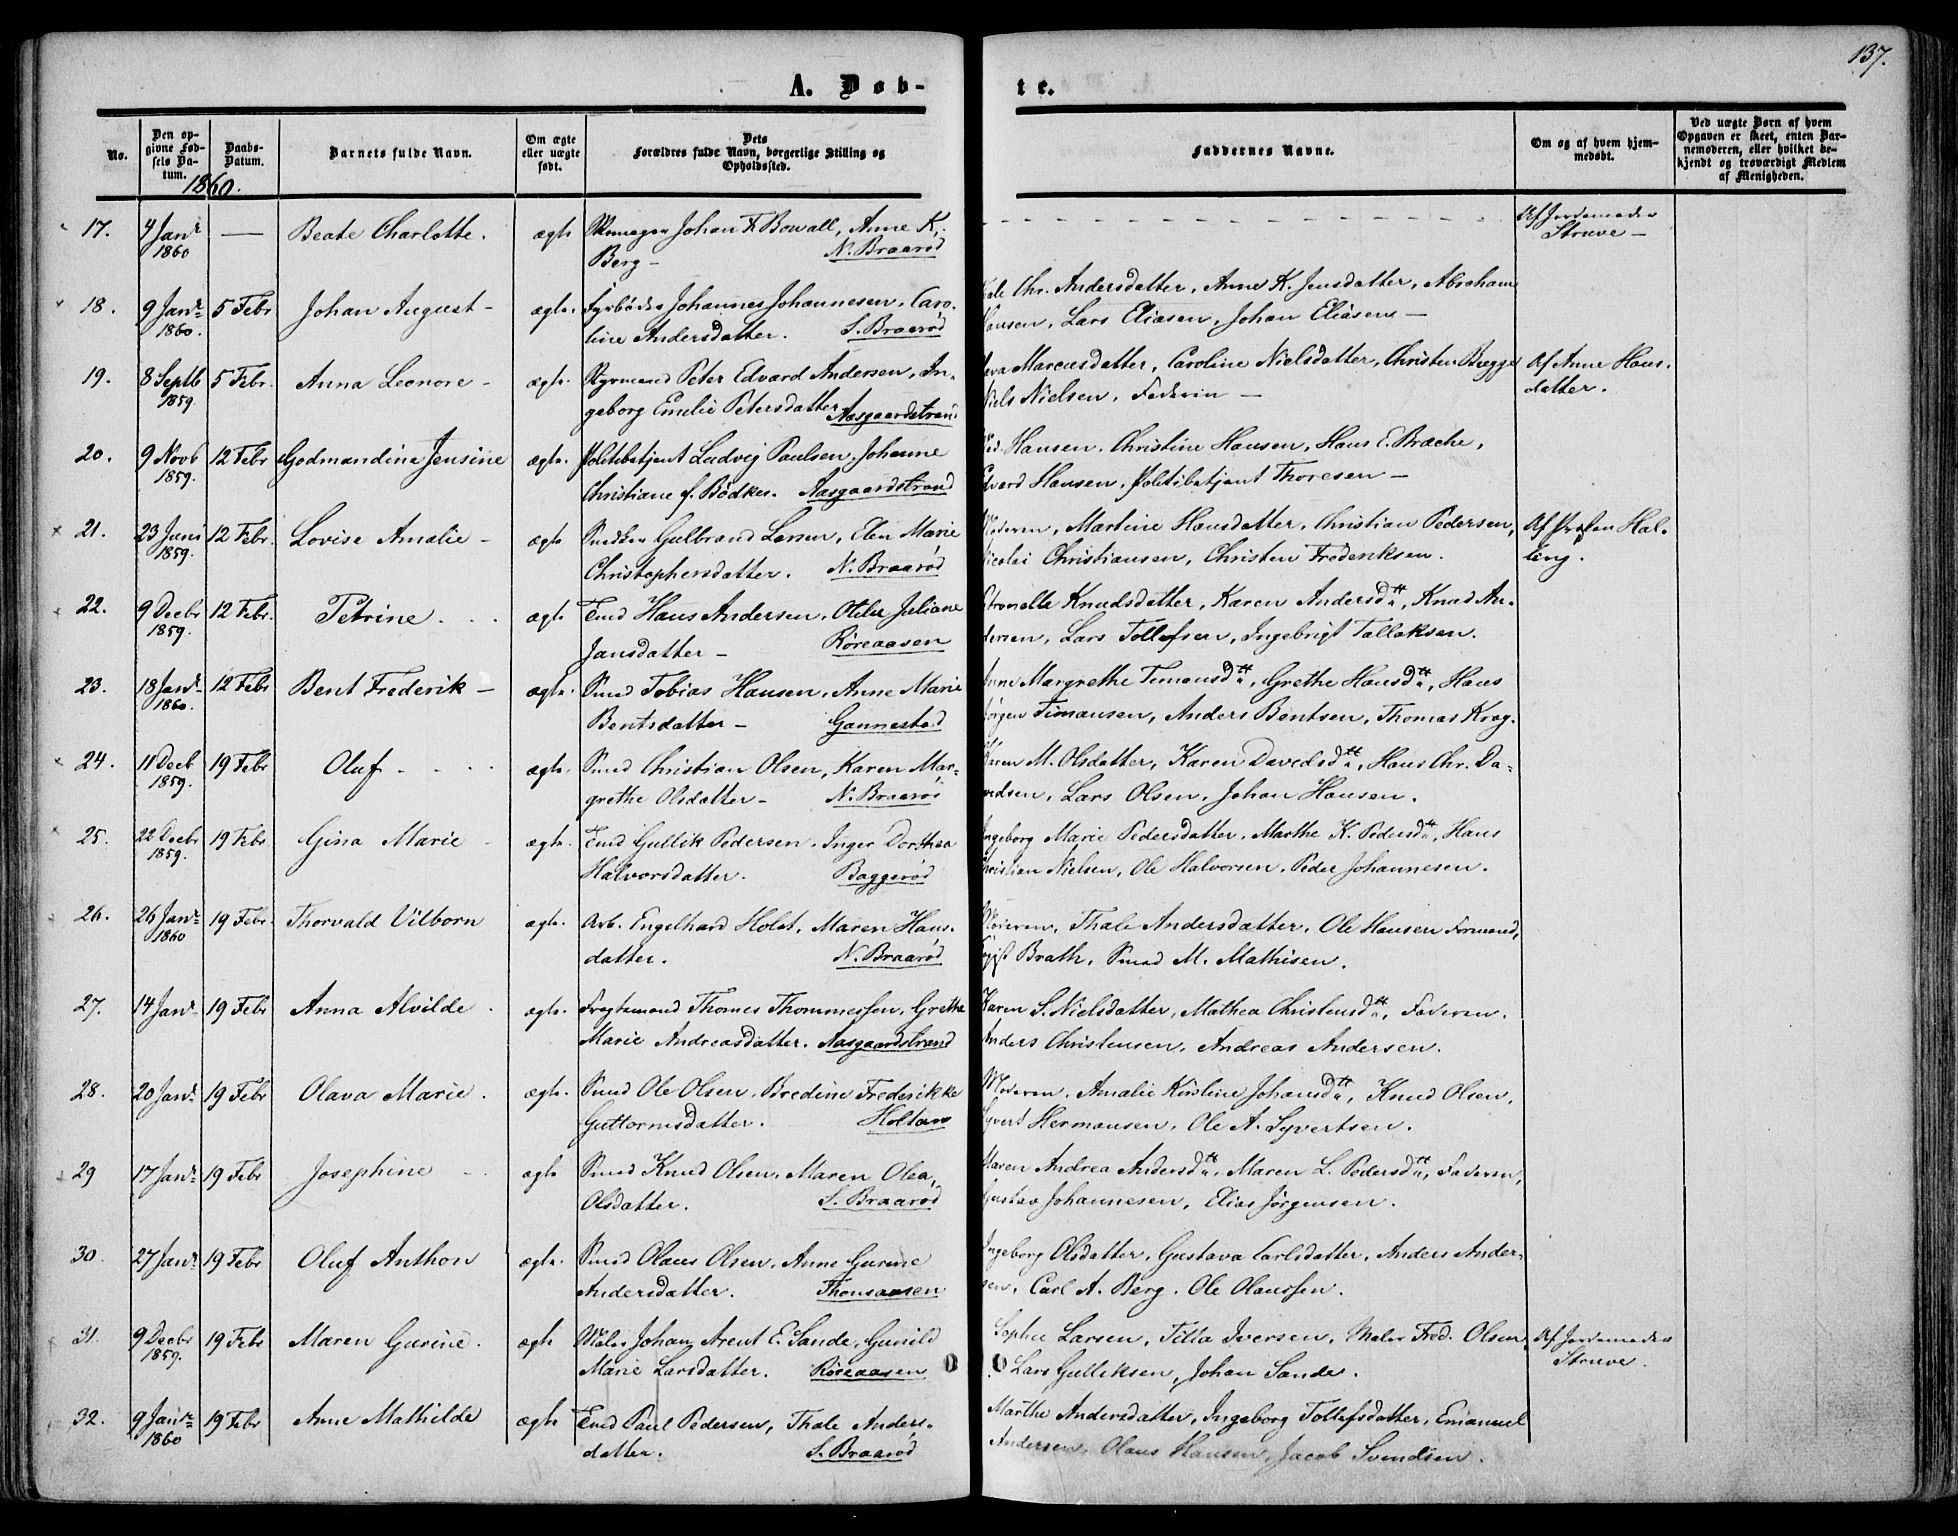 137.
A. Døb-
te.
No.
Den op-
givne Fød-
sels Da-
tum.
Daabs-
Datum.
Barnets fulde Navn.
Om ægte
eller uægte
født.
Dets
Forældres fulde Navn, borgerlige Stilling og
Opholdssted.
Faddernes Navne.
Om og af hvem hjem-
medøbt.
Ved uægte Børn af hvem
Opgaven er skeet, enten Bar-
nemoderen, eller hvilket be-
kjendt og troværdigt Medlem
af Menigheden.
1860.
17. 4 Janr 1860 — Beate Charlotte. ægte Johan F Bowall, Anne K.
Berg — N. Braarød
Af Jordemoder
Struve —
18. 9 Janr 1860. 5 Febr Johan August — ægte. Fyrbøder Johannes Johannesen, Caro-
line Andersdatter. S. Braarød
Chr. Andersdatter, Anne K. Jensdatter, Abraham
Hansen, Lars Eliasen, Johan Eliasen —
19. 8 Septb 1859. 5 Febr. Anna Leonore — ægte. Styrmand Peter Edvard Andersen, In-
geborg Emilie Petersdatter Aasgaardstrand
Marcusdatter, Caroline Nielsdatter, Christen Bugge
Niels Nielsen, Faderen —
Af Anne Hans-
datter.
20. 9 Novb 1859. 12 Febr Godmandine Jensine ægte. Politibetjent Ludvig Paulsen, Johanne
Christiane f. Bødker. Aasgaardstrand
Hansen, Christine Hansen, Hans E. Brache,
Edvard Hansen, Politibetjent Thoresen —
21. 23 Juni 1859. 12 Febr. Lovise Amalie — ægte Snedker Gulbrand Larsen, Elen Marie
Christophersdatter. N. Braarød
Moderen, Martine Hansdatter, Christian Pedersen,
Nicolai Christiansen, Christen Frederiksen.
Af Hal-
ling.
22. 9 Decbr 1859. 12 Febr. Petrine. ægte Eind Hans Andersen, Otilie Juliane
Jansdatter — Røreaasen
Petronelle Knudsdatter, Karen Andersdtt, Knud An-
dersen, Lars Tollefsen, Ingebrigt Tallaksen.
23. 18 Janr 1860. 12 Febr Bent Frederik — ægte. Smed Tobias Hansen, Anne Marie
Bentsdatter — Gannestad
Anne Margrethe Timansdtt, Grethe Hansdtt, Hans
Jørgen Timansen, Anders Bentsen, Thomas Krag.
24. 11 Decb 1859. 19 Febr Oluf ægte. Smed Christian Olsen, Karen Mar-
grethe Olsdatter — N. Braarød
Karen M. Olsdatter, Karen Davidsdtt, Hans Chr. Da-
vidsen, Lars Olsen, Johan Hansen.
25. 22 Decbr 1859. 19 Febr Gina Marie ægte. Eind Gullik Pedersen, Inger Dorthea
Halvorsdatter. Baggerød
Ingeborg Marie Pedersdatter, Marthe K. Pedersdtt, Hans
Christian Nielsen, Ole Halvorsen, Peder Johannesen.
26. 26 Janr 1860 19 Febr. Thorvald Vilborn ægte. Arb. Engelhard Holst, Maren Hans-
datter. N. Braarød
Moderen, Thale Andersdatter, Ole Hansen Formand,
Brath, Smed M. Mathisen.
27. 14 Janr 19 Febr Anna Alvilde. ægte. Fragtemand Thomas Thommessen, Grethe
Marie Andreasdatter. Aasgaardstrand
Karen S. Nielsdatter, Mathea Christensdtt, Faderen.
Anders Christensen, Andreas Andersen.
28. 20 Janr 19 Febr Olava Marie. ægte. Smed Ole Olsen, Bredine Frederikke
Guttormsdatter. Holtan
Moderen, Amalie Kirstine Johansdtt, Knud Olsen,
Syvert Hermansen, Ole A. Syvertsen.
29 17 Janr 19 Febr Josephine ægte Smed Knud Olsen, Maren Olea,
Olsdatter. S. Braarød
Maren Andrea Andersdtt, Maren L. Pedersdtt, Faderen,
Gustav Johannesen, Elias Jørgensen.
30. 27 Janr 19 Febr Oluf Anthon ægte. Smed Olaus Olsen, Anne Gurine
Andersdatter. Thonsaasen
Ingeborg Olsdatter, Gustava Carlsdatter, Anders Ander-
sen, Carl A. Berg. Ole Olaussen.
31. 9 Decbr 1859. 19 Febr Maren Gurine. ægte Maler Johan Arent E. Sande, Gunild
Marie Larsdatter. Røreaasen
Sophie Larsen, Tilla Iversen, Maler Fred. Olsen,
Lars Gulliksen, Johan Sande.
Af Jordemoder
Struve.
32. 9 Janr 1860 19 Febr Anne Mathilde ægte Eind Paul Pedersen, Thale Anders-
datter. S. Braarød
Marthe Andersdatter, Ingeborg Tollefsdatter, Emanuel
Andersen, Olaus Hansen, Jacob Svendsen.